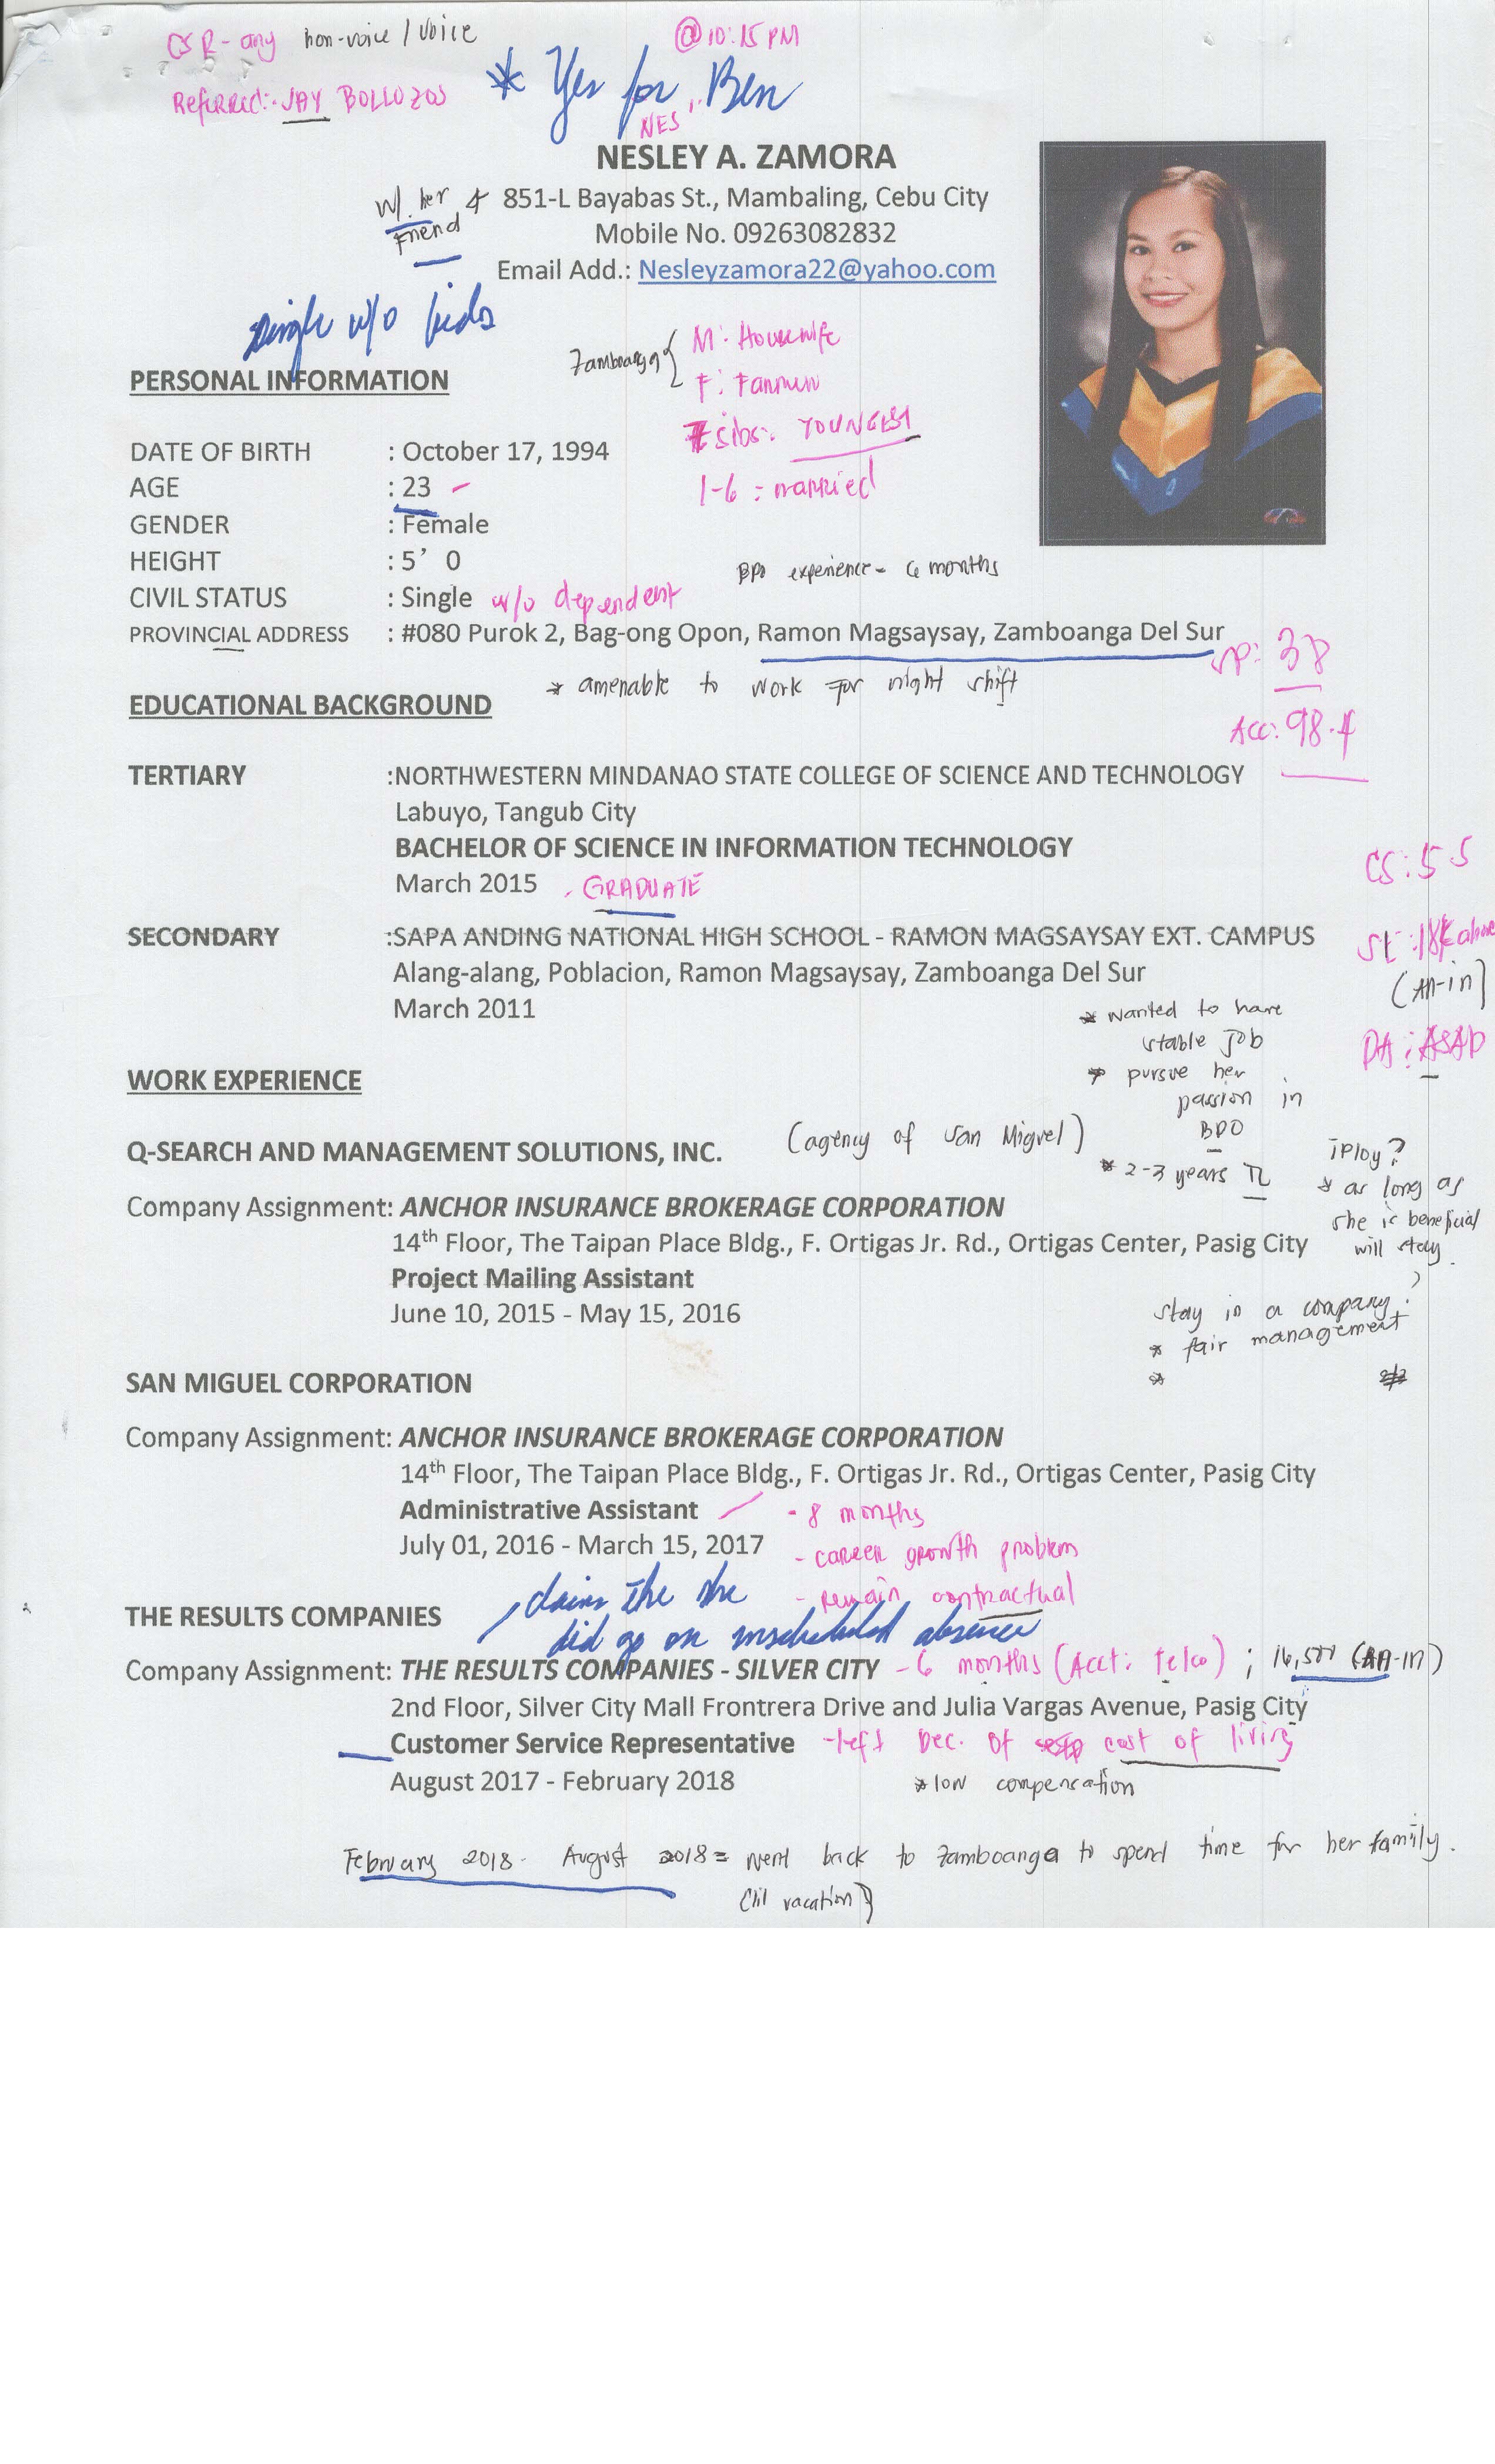 CSR - any non-voice / voice
@ 10:15 PM
Referred: JAY BOLLOZOS
* Yes for Ben
NES
NESLEY A. ZAMORA
w/ her friend
851-L Bayabas St., Mambaling, Cebu City
Mobile No. 09263082832
Email Add.: Nesleyzamora22@yahoo.com
single w/o kids
Zamboanga { M: Housewife
F: Farmer
7 sibs: YOUNGEST
1-6 = married
PERSONAL INFORMATION
DATE OF BIRTH : October 17, 1994
AGE : 23
GENDER : Female
HEIGHT : 5' 0
BPO experience - 6 months
CIVIL STATUS : Single w/o dependent
PROVINCIAL ADDRESS : #080 Purok 2, Bag-ong Opon, Ramon Magsaysay, Zamboanga Del Sur
SP: 38
* amenable to work for night shift
EDUCATIONAL BACKGROUND
Acc: 98.4
TERTIARY :NORTHWESTERN MINDANAO STATE COLLEGE OF SCIENCE AND TECHNOLOGY
Labuyo, Tangub City
BACHELOR OF SCIENCE IN INFORMATION TECHNOLOGY
March 2015 - GRADUATE
CS: 55
SECONDARY :SAPA ANDING NATIONAL HIGH SCHOOL - RAMON MAGSAYSAY EXT. CAMPUS
SE: 18K above
(AA-in)
Alang-alang, Poblacion, Ramon Magsaysay, Zamboanga Del Sur
March 2011
DA: ASAP
* wanted to have
stable job
* pursue her
passion in
BPO
* 2-3 years TL
WORK EXPERIENCE
Q-SEARCH AND MANAGEMENT SOLUTIONS, INC. (agency of San Miguel)
iPloy?
* as long as
she is beneficial
will stay
Company Assignment: ANCHOR INSURANCE BROKERAGE CORPORATION
14th Floor, The Taipan Place Bldg., F. Ortigas Jr. Rd., Ortigas Center, Pasig City
Project Mailing Assistant
June 10, 2015 - May 15, 2016
stay in a company?
* fair management
*
SAN MIGUEL CORPORATION
Company Assignment: ANCHOR INSURANCE BROKERAGE CORPORATION
14th Floor, The Taipan Place Bldg., F. Ortigas Jr. Rd., Ortigas Center, Pasig City
Administrative Assistant - 8 months
July 01, 2016 - March 15, 2017 - career growth problem
- remain contractual
THE RESULTS COMPANIES
claims the she
did go on unscheduled absence
Company Assignment: THE RESULTS COMPANIES - SILVER CITY - 6 months (Acct: telco) ; 16,500 (AA-IN)
2nd Floor, Silver City Mall Frontrera Drive and Julia Vargas Avenue, Pasig City
Customer Service Representative - left Dec. of cost of living
August 2017 - February 2018 * low compensation
February 2018 - August 2018 = went back to Zamboanga to spend time for her family.
(lil vacation)